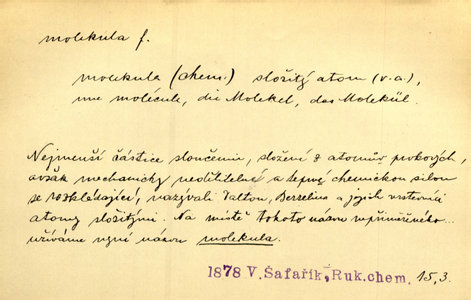 molekula f.
molekula (chem.) složitý atom (v.a.),
une molécule, die Molekel, das Molekül.
Nejmenší částice sloučenin, složení z atomův prvkových,
avšak mechanicky nedělitelné a teprvé chemickou silou
se rozkládající, nazývali Dalton, Berzelius a jejich vrstevníci
atomy složitými. Na místě tohoto názvu nepřiměřeného...
užíváme nyní názvu molekula.
1878 V. Šafařík, Ruk. chem. 15,3.